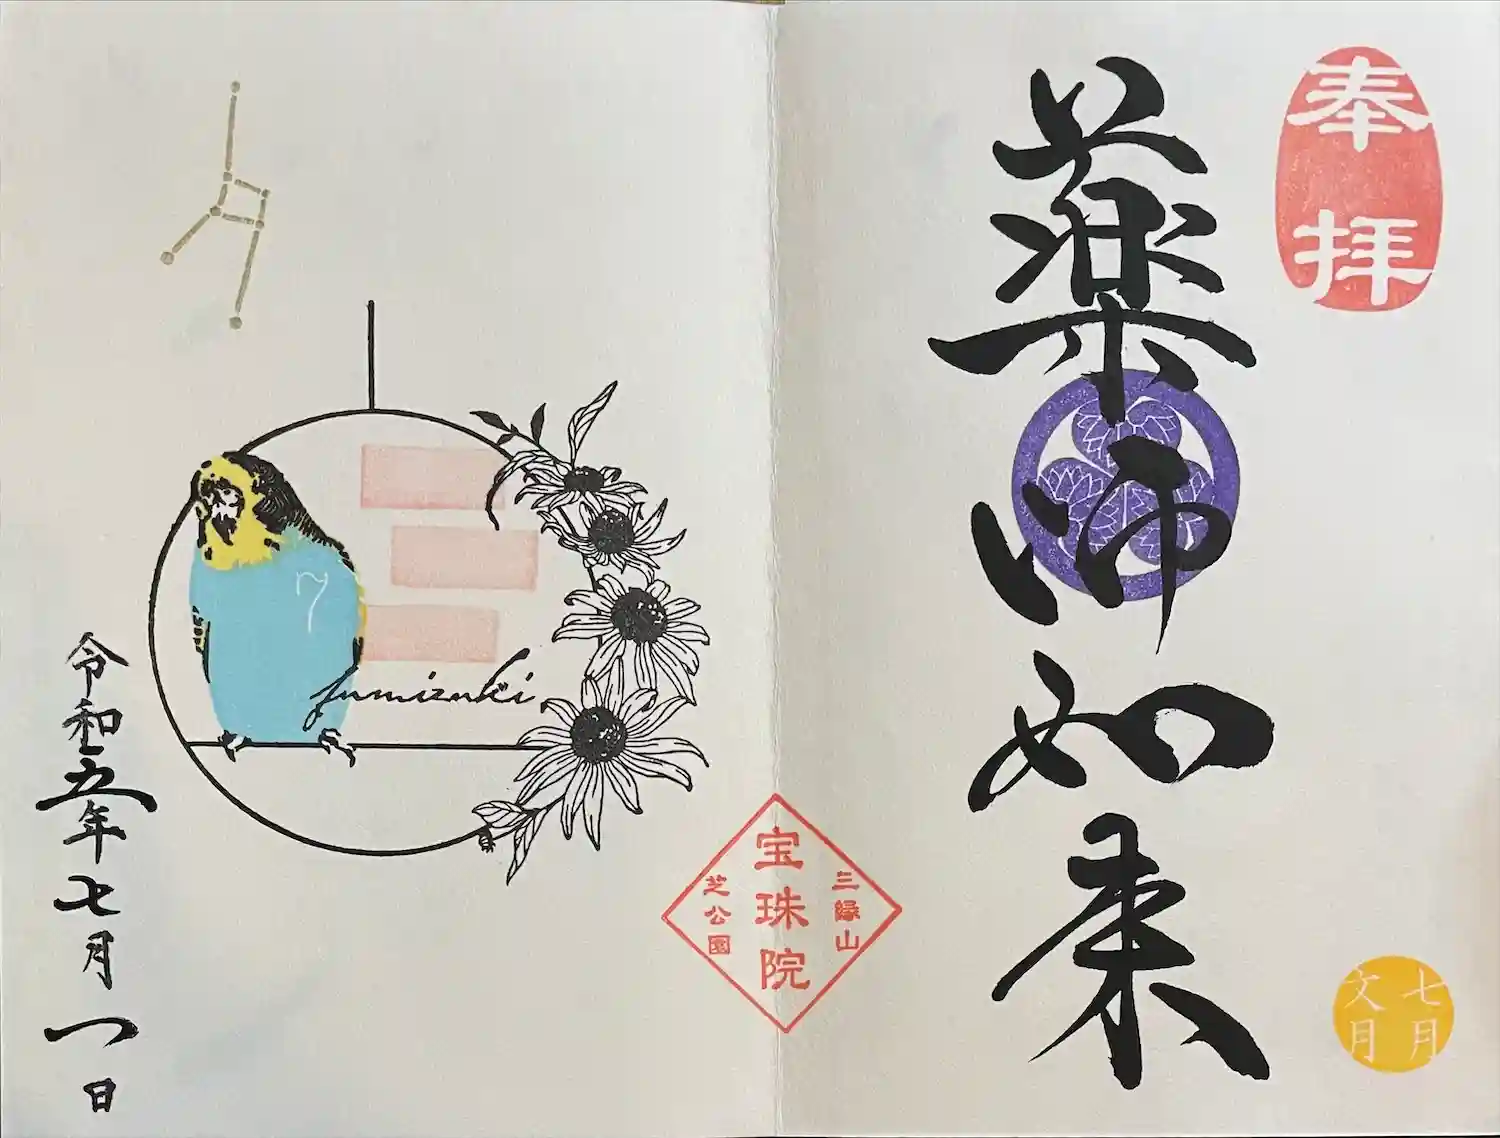 奉拝
薬師如来
七月
文月
三縁山
宝珠院
芝公園
7
fumizuki
令和五年七月一日